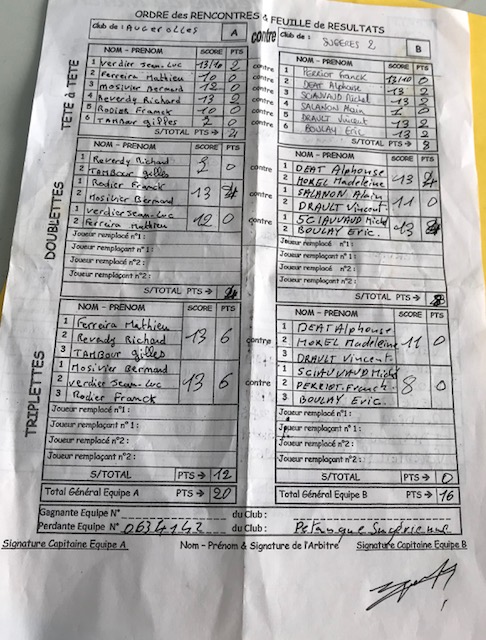 ORDRE des RENCONTRES & FEUILLE de RESULTATS
Club de : AUGEROLLES A contre Club de : SUGERES 2 B
TETE à TETE
NOM - PRENOM SCORE PTS
1 Verdier Jean-Luc 13/10 2
2 Ferreira Mathieu 10 0
3 Mosivier Bernard 12 0
4 Reverdy Richard 13 2
5 Rodier Franck 10 0
6 TAMBOUR gilles 2 0
S/TOTAL PTS → 4
contre
contre
contre
contre
contre
contre
NOM - PRENOM SCORE PTS
1 PERRIOT Franck 13/10 0
2 DEAT Alphonse 13 2
3 SCIAUVAUD Michel 13 2
4 SALANON Alain 0
5 DRAULT Vincent 13 2
6 BOULAY Eric 13 2
S/TOTAL PTS → 8
DOUBLETTES
NOM - PRENOM SCORE PTS
1 Reverdy Richard
2 TAMBOUR gilles 2 0
1 Rodier Franck
2 Mosivier Bernard 13
1 Verdier Jean-Luc
2 Ferreira Mathieu 12 0
Joueur remplacé n°1 :
Joueur remplaçant n°1 :
Joueur remplacé n°2 :
Joueur remplaçant n°2 :
S/TOTAL PTS →
contre
contre
contre
NOM - PRENOM SCORE PTS
1 DEAT Alphonse
2 MOREL Madeleine 13
1 SALANON Alain
2 DRAULT Vincent 11 0
1 SCIAUVAUD Michel
2 BOULAY Eric. 13
Joueur remplacé n°1 :
Joueur remplaçant n°1 :
Joueur remplacé n°2 :
Joueur remplaçant n°2 :
S/TOTAL PTS → 8
TRIPLETTES
NOM - PRENOM SCORE PTS
1 Ferreira Mathieu
2 Reverdy Richard 13 6
3 TAMBOUR gilles
1 Mosivier Bernard
2 Verdier Jean-Luc 13 6
3 Rodier Franck
Joueur remplacé n°1 :
Joueur remplaçant n°1 :
Joueur remplacé n°2 :
Joueur remplaçant n°2 :
S/TOTAL PTS → 12
Total Général Equipe A PTS → 20
contre
contre
NOM - PRENOM SCORE PTS
1 DEAT Alphonse
2 MOREL Madeleine 11 0
3 DRAULT Vincent
1 SCIAUVAUD Michel
2 PERRIOT Franck 8 0
3 BOULAY Eric.
Joueur remplacé n°1 :
Joueur remplaçant n°1 :
Joueur remplacé n°2 :
Joueur remplaçant n°2 :
S/TOTAL PTS → 0
Total Général Equipe B PTS → 16
Gagnante Equipe N° du Club :
Perdante Equipe N° 0634142 du Club : Petanque Sugèrienne
Signature Capitaine Equipe A Nom - Prénom & Signature de l'Arbitre Signature Capitaine Equipe B